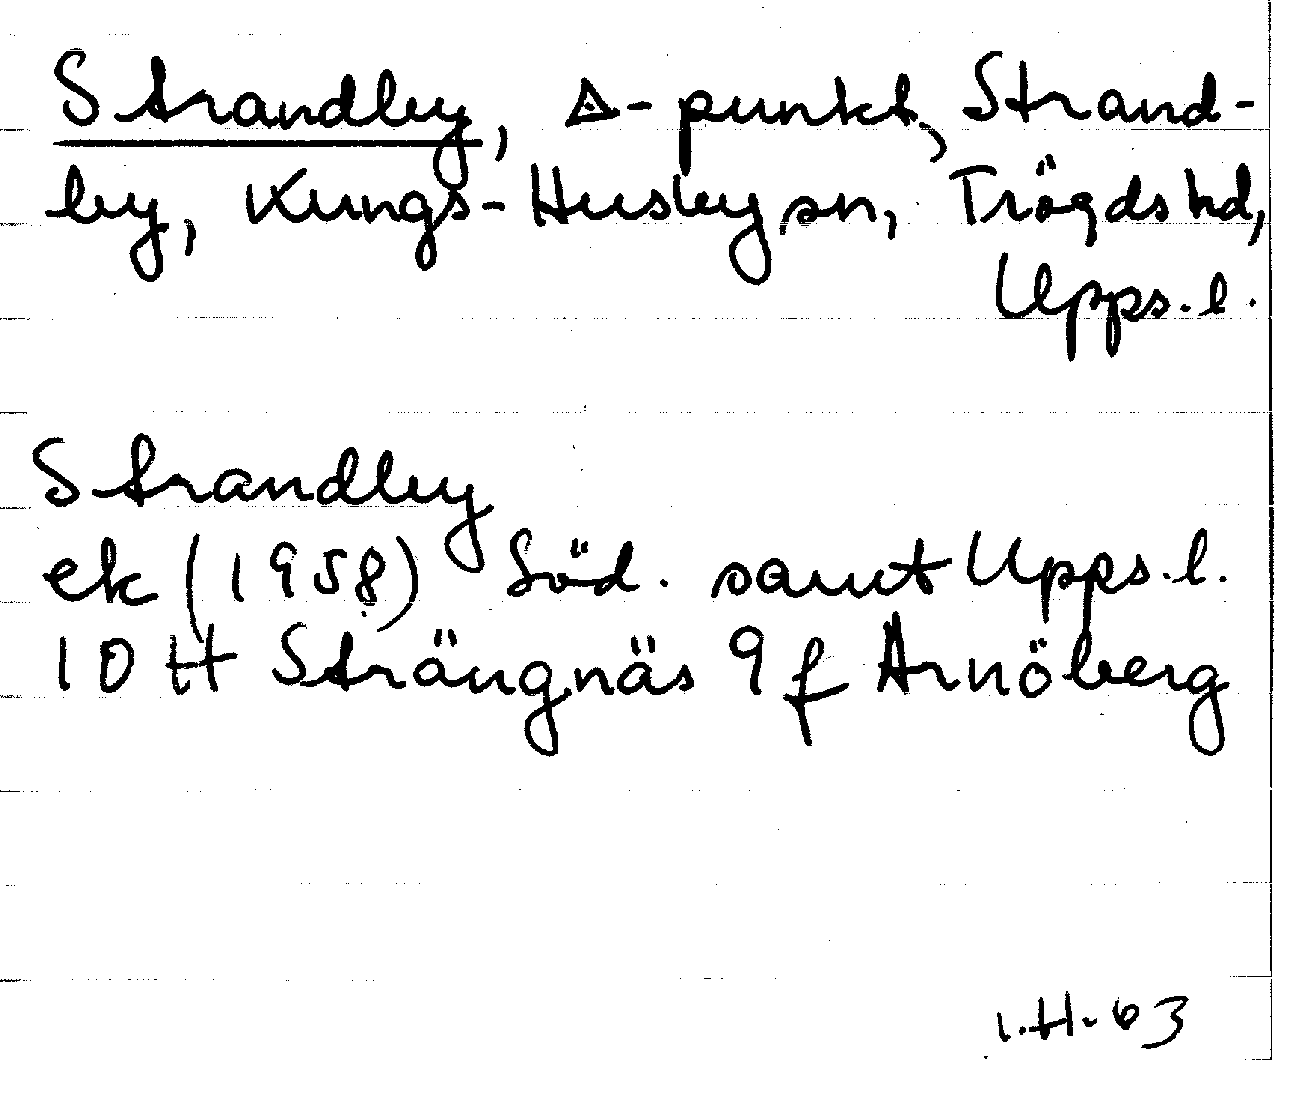 Strandby, △-punkt, Strand-
by, Kungs-Husby sn, Trögds hd,
Upps. l.
Strandby
ek (1958) Söd. samt Upps. l.
10 H Strängnäs 9 f Arnöberg
I.H. 63